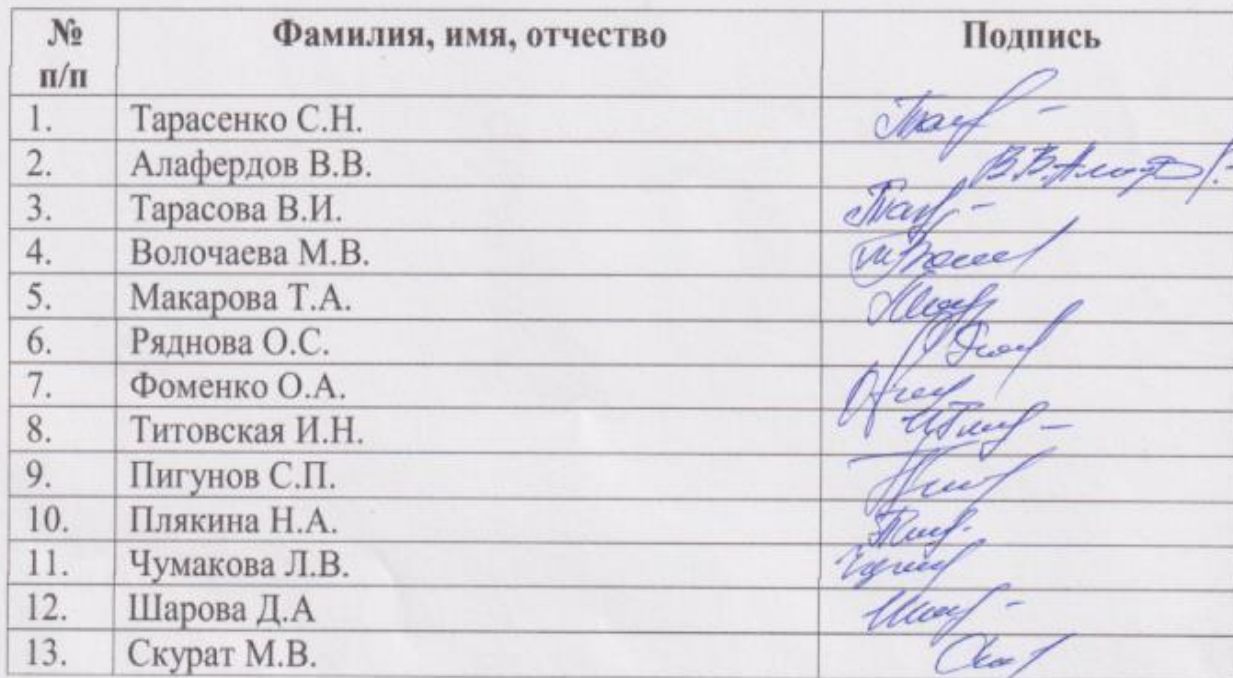 № п/п Фамилия, имя, отчество Подпись
1. Тарасенко С.Н.
2. Алафердов В.В.
3. Тарасова В.И.
4. Волочаева М.В.
5. Макарова Т.А.
6. Ряднова О.С.
7. Фоменко О.А.
8. Титовская И.Н.
9. Пигунов С.П.
10. Плякина Н.А.
11. Чумакова Л.В.
12. Шарова Д.А
13. Скурат М.В.